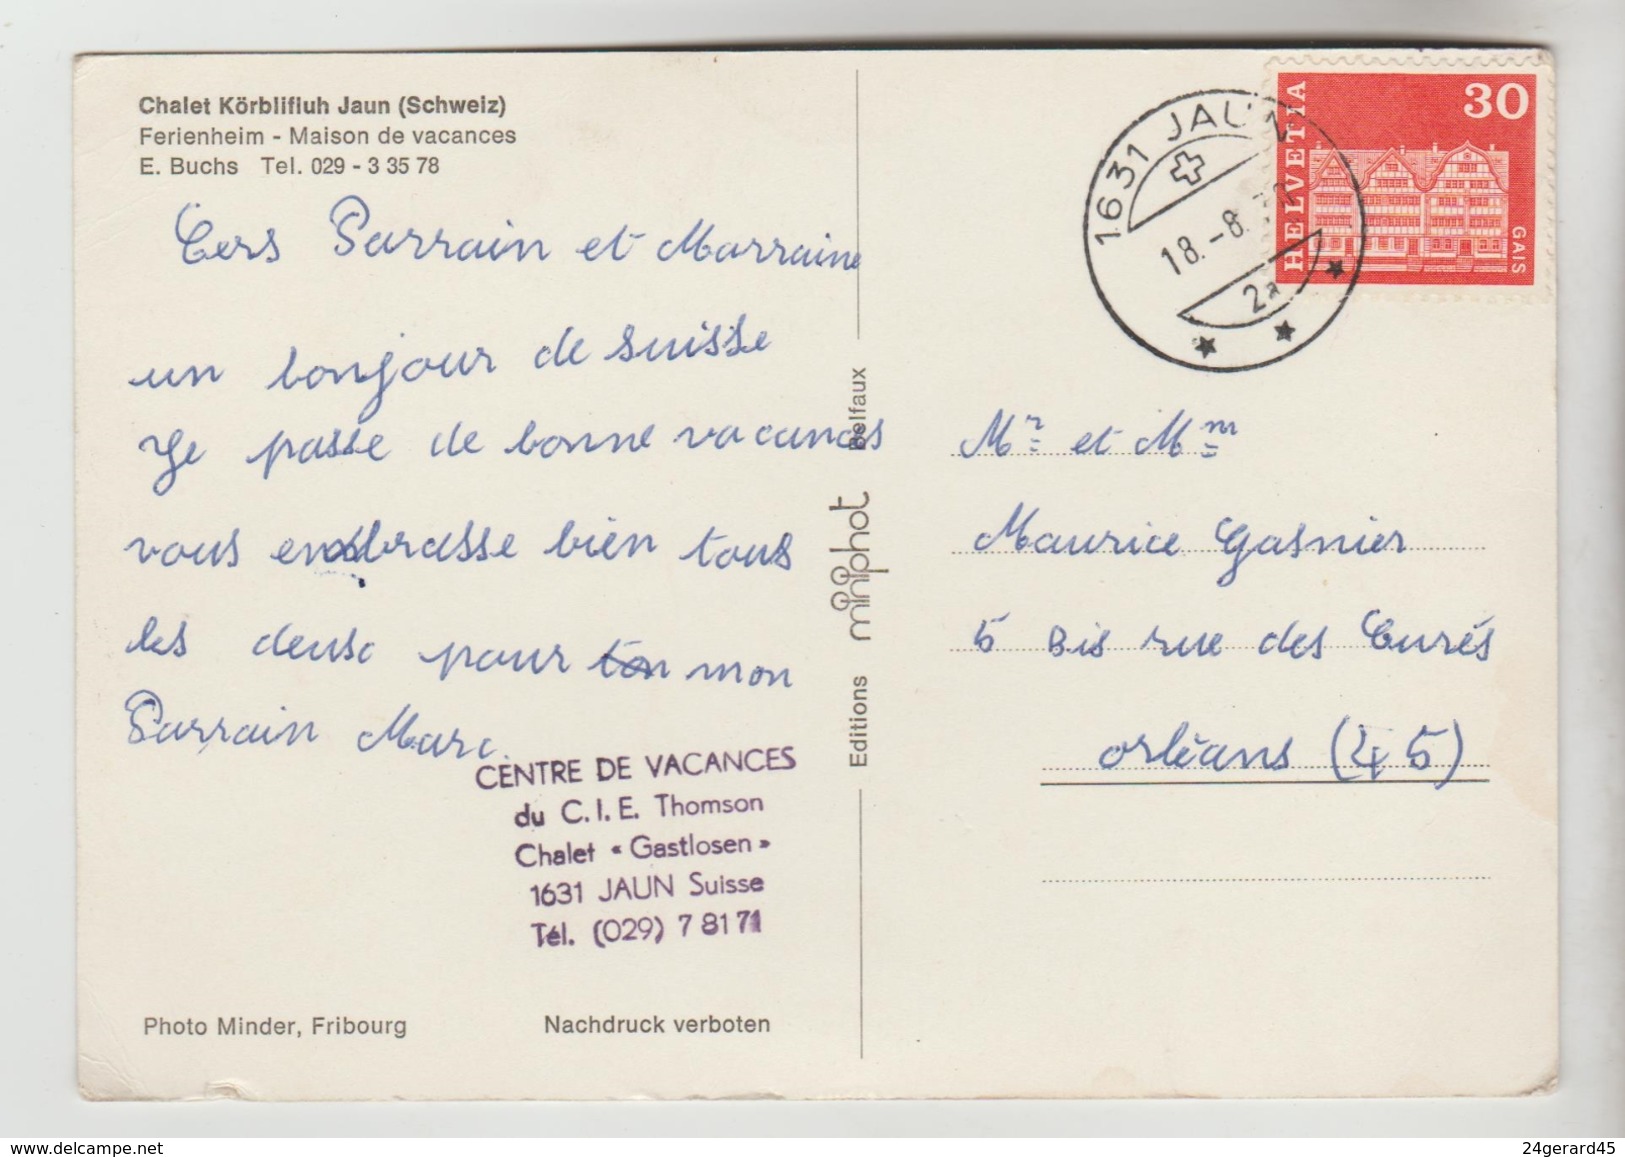 Chalet Körblifluh Jaun (Schweiz)
Ferienheim - Maison de vacances
E. Buchs Tel. 029 - 3 35 78
Cers Parrain et Marraine
un bonjour de suisse
Je passe de bonne vacances
vous embrasse bien tous
les deux pour mon
Parrain Marc.
CENTRE DE VACANCES
du C.I.E. Thomson
Chalet « Gastlosen »
1631 JAUN Suisse
Tél. (029) 7 81 71
Photo Minder, Fribourg
Nachdruck verboten
Editions miniphot Belfaux
1631 JAUN
18.-8.
2a
HELVETIA
30
GAIS
Mr et Mm
Maurice Gasnier
5 Bis rue des Curés
orléans (45)
www.delcampe.net
24gerard45